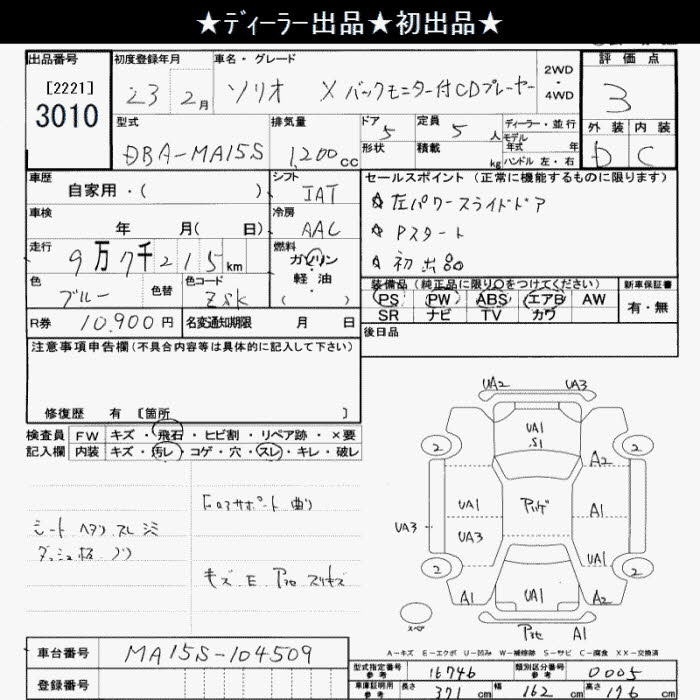 ★ディーラー出品★初出品★
出品番号
[2221]
3010
初度登録年月
23 2月
車名・グレード
ソリオ X バックモニター付CDプレーヤー
2WD
・
4WD
評価点
3
外装 内装
D C
型式
DBA-MA15S
排気量
1,200cc
ドア
5
形状
定員
5人
積載
kg
ディーラー・並行
モデル
年式 年
ハンドル 左・右
車歴
自家用・( )
シフト
IAT
車検
年 月( 日)
冷房
AAC
走行
9万7千215km
燃料
ガソリン
・
軽油
( )
色
ブルー
色替
色コード
ZSK
R券 10,900円
名変通知期限 月 日
セールスポイント (正常に機能するものに限ります)
☆ 左パワースライドドア
☆ Pスタート
☆ 初出品
装備品 (純正品に限り○をつけてください)
PS PW ABS エアB AW
SR ナビ TV カワ
新車保証書
有・無
後日品
注意事項申告欄(不具合内容等は具体的に記入して下さい)
修復歴 有 [箇所 ]
検査員
記入欄
FW キズ・飛石・ヒビ割・リペア跡・×要
内装 キズ・汚レ・コゲ・穴・スレ・キレ・破レ
シート ヘタリ スレ シミ
コアサポート 曲り
UA2 UA3
UA1
S1
2 2
A2
UA1 A1
UA3 UA3
UA1
2 2
A1 UA1 A2
A1
スペア
A-キズ E-エクボ U-凹み W-補修跡 S-サビ C-腐食 XX-交換済
車台番号
MA15S-104509
登録番号
型式指定番号
参考
16746
類別区分番号
参考
0005
車庫証明用
参考
長さ 371cm
幅 162cm
高さ 176cm